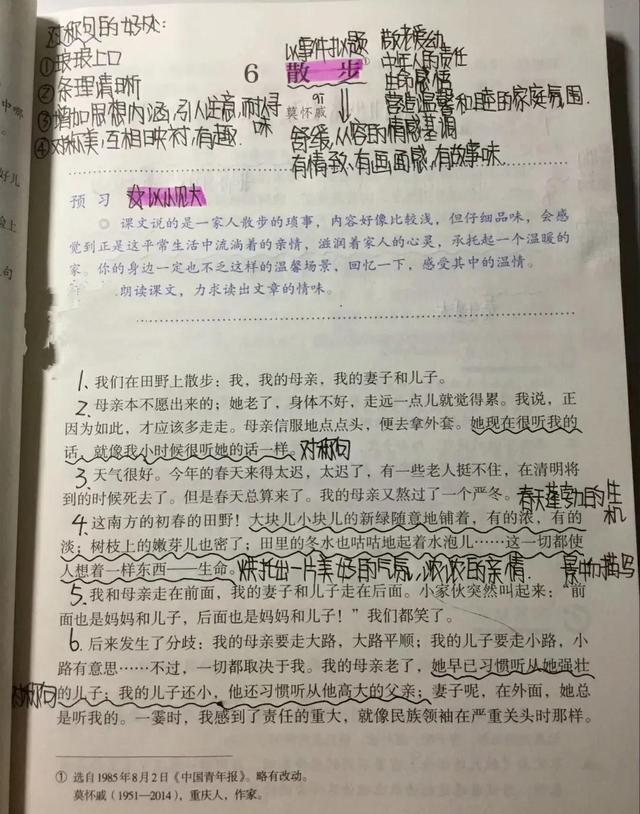 对称句的好处:
①琅琅上口
②条理清晰
③增加思想内涵,引人注意,而耐寻味
④对称美,互相映衬,有趣.
6 散步①
莫怀戚
以事件拟题
舒缓,从容的情感基调
有情致.有画面感,有故事味.
尊老爱幼
中年人的责任
生命感悟
营造温馨和睦的家庭氛围.
预习 ☆以小见大
◎ 课文说的是一家人散步的琐事，内容好像比较浅，但仔细品味，会感
觉到正是这平常生活中流淌着的亲情，滋润着家人的心灵，承托起一个温暖的
家。你的身边一定也不乏这样的温馨场景，回忆一下，感受其中的温情。
朗读课文，力求读出文章的情味。
1、我们在田野上散步：我，我的母亲，我的妻子和儿子。
2、母亲本不愿出来的；她老了，身体不好，走远一点儿就觉得累。我说，正
因为如此，才应该多走走。母亲信服地点点头，便去拿外套。她现在很听我的
话，就像我小时候很听她的话一样。对称句
3、天气很好。今年的春天来得太迟，太迟了，有一些老人挺不住，在清明将
到的时候死去了。但是春天总算来了。我的母亲又熬过了一个严冬。春天蓬勃的生机
4、这南方的初春的田野！大块儿小块儿的新绿随意地铺着，有的浓，有的
淡；树枝上的嫩芽儿也密了；田里的冬水也咕咕地起着水泡儿……这一切都使
人想着一样东西——生命。烘托出一片美好的气氛,浓浓的亲情. 景物描写
5、我和母亲走在前面，我的妻子和儿子走在后面。小家伙突然叫起来：“前
面也是妈妈和儿子，后面也是妈妈和儿子！”我们都笑了。
6、后来发生了分歧：我的母亲要走大路，大路平顺；我的儿子要走小路，小
路有意思……不过，一切都取决于我。我的母亲老了，她早已习惯听从她强壮
对称句 的儿子；我的儿子还小，他还习惯听从他高大的父亲；妻子呢，在外面，她总
是听我的。一霎时，我感到了责任的重大，就像民族领袖在严重关头时那样。
① 选自1985年8月2日《中国青年报》。略有改动。
莫怀戚（1951—2014），重庆人，作家。